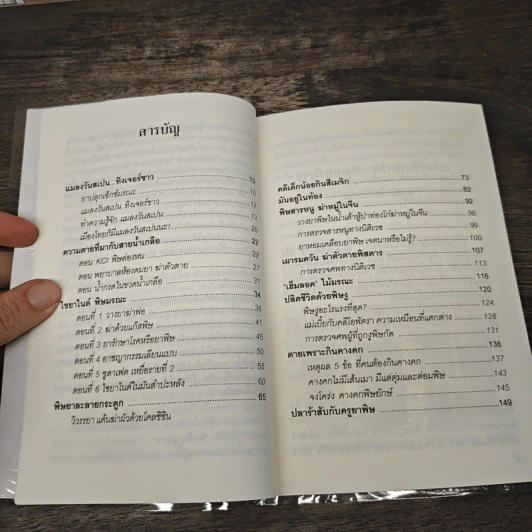 สารบัญ
แมลงวันสเปน...ทิงเจอร์ขาว 10
ยาปลุกเซ็กซ์มรณะ 10
แมลงวันสเปน ทิงเจอร์ขาว 12
ทำความรู้จัก แมลงวันสเปน 13
เมืองไทยก็มีแมลงวันสเปนนะ! 20
ความตายที่มากับสายน้ำเกลือ 22
ตอน KCl พิษล่องหน 22
ตอน พยาบาลห้องดมยา ฆ่าตัวตาย 27
ตอน น้ำกรดในขวดน้ำเกลือ 31
ไซยาไนด์ พิษมรณะ 34
ตอนที่ 1 วางยาฆ่าพ่อ 36
ตอนที่ 2 ฆ่าด้วยแก๊สพิษ 41
ตอนที่ 3 ยารักษาโรคหรือยาพิษ 45
ตอนที่ 4 อาชญากรรมเลียนแบบ 50
ตอนที่ 5 ซูดาเฟด เหยื่อรายที่ 2 55
ตอนที่ 6 ไซยาไนด์ในมันสำปะหลัง 60
พิษยาละลายกระดูก 65
วิวรรยา แค้นฆ่าผัวด้วยโคลชิซิน
คดีเด็กน้อยกินสีเมจิก 73
มันอยู่ในท้อง 82
พิษสารหนู ฆ่าหมู่ในจีน 92
วางยาพิษในน้ำเต้าหู้ปาท่องโก๋ฆ่าหมู่ในจีน 96
การตรวจสารหนูทางนิติเวช 99
ยาหอมเคลือบยาพิษ เจตนาหรือไม่รู้? 100
เผารมควัน ฆ่าตัวตายพิสดาร 107
การตรวจศพทางนิติเวช 113
'เฮ็มลอค' ไม้มรณะ 116
ปลิดชีวิตด้วยพิษงู 120
พิษงูอะไรแรงที่สุด? 124
แม่เบี้ยกับคลีโอพัตรา ความเหมือนที่แตกต่าง 128
การตรวจศพผู้ที่ถูกงูพิษกัด 131
ตายเพราะกินคางคก 136
เหตุผล 5 ข้อ ที่คนต้องกินคางคก 137
คางคกไม่มีเส้นเมา มีแต่ตุ่มและต่อมพิษ 143
จงโคร่ง คางคกพิษยักษ์ 145
ปลาร้าสับกับครูยาพิษ 149